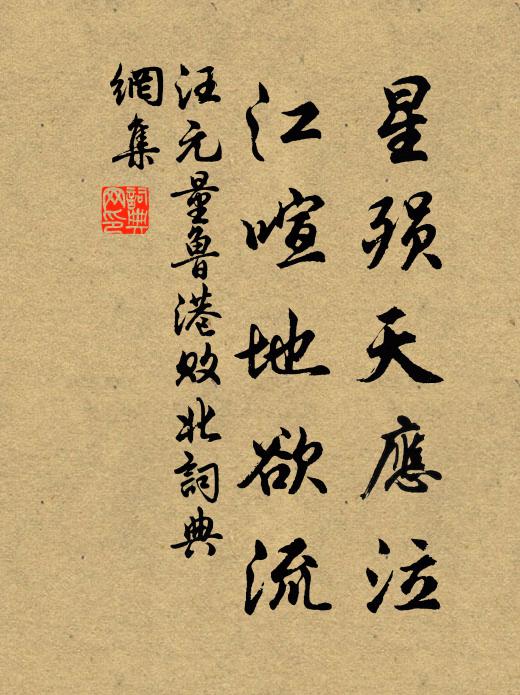 星殒天應泣
江喧地欲流
汪元量魯港败北詞典
網集
詞典
网印